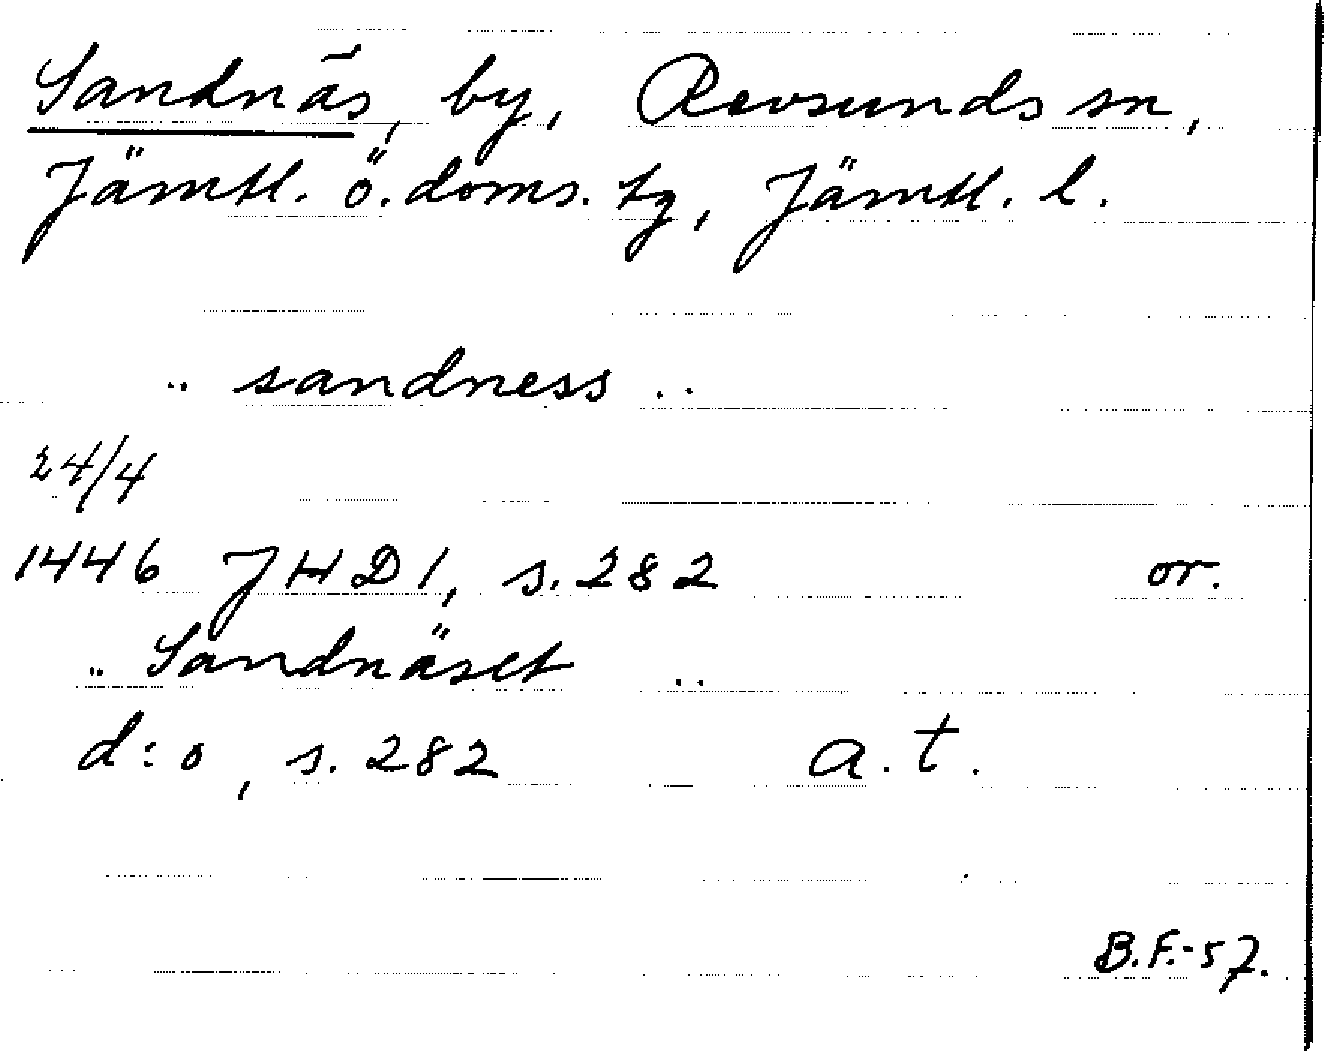 Sandnäs, by, Revsunds sn,
Jämtl. ö. doms. tg, Jämtl. l.
.. sandness ..
24/4
1446 JHD 1, s. 282 or.
.. Sandnäset ..
d:o, s. 282 a.t.
B.F.-57.